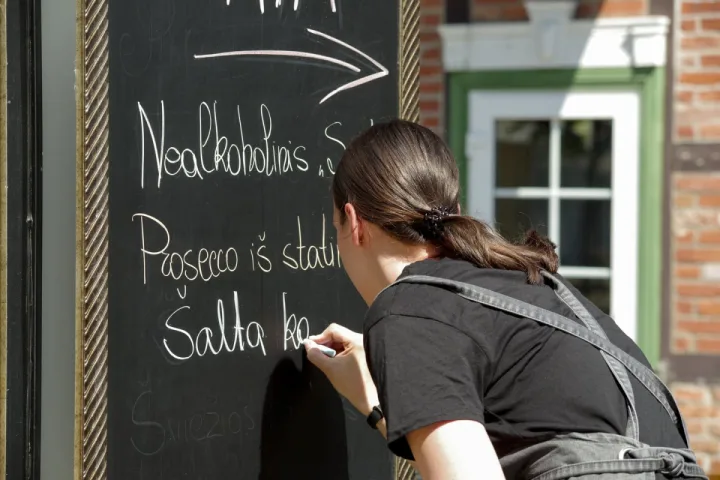 Nealkoholinis „S
Prosecco iš stati
Šalta ka
Šviežios